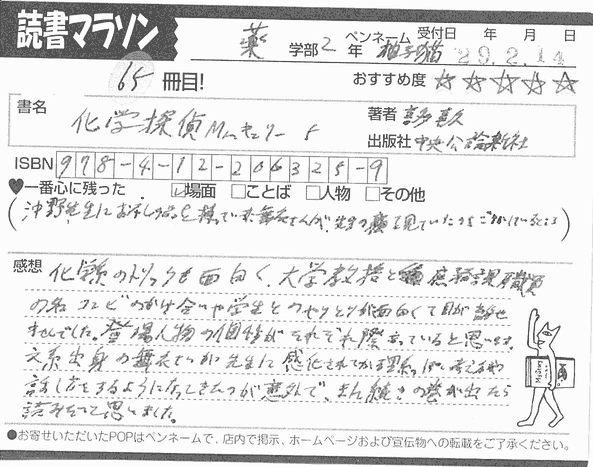 読書マラソン
薬 学部 2 年 ペンネーム 柚子猫 受付日 年 月 日
29.2.14
65 冊目! おすすめ度 ☆☆☆☆☆
書名 化学探偵Mr.キュリー 5
著者 喜多喜久
出版社 中央公論新社
ISBN 978-4-12-206325-9
♥一番心に残った ☑場面 □ことば □人物 □その他
感想 化学のトリックも面白く、大学教授と 庶務課職員
の名コンビのかけ合いや学生とのやりとりが面白くて目が離せ
ませんでした。登場人物の個性がそれぞれ際立っていると思います。
文系出身の舞衣 先生に感化されてか理系っぽい考え方や
話し方をするようになってきたのが意外で、また続きの巻が出たら
読みたいと思いました。
Mystery
●お寄せいただいたPOPはペンネームで、店内で掲示、ホームページおよび宣伝物への転載をご了承ください。